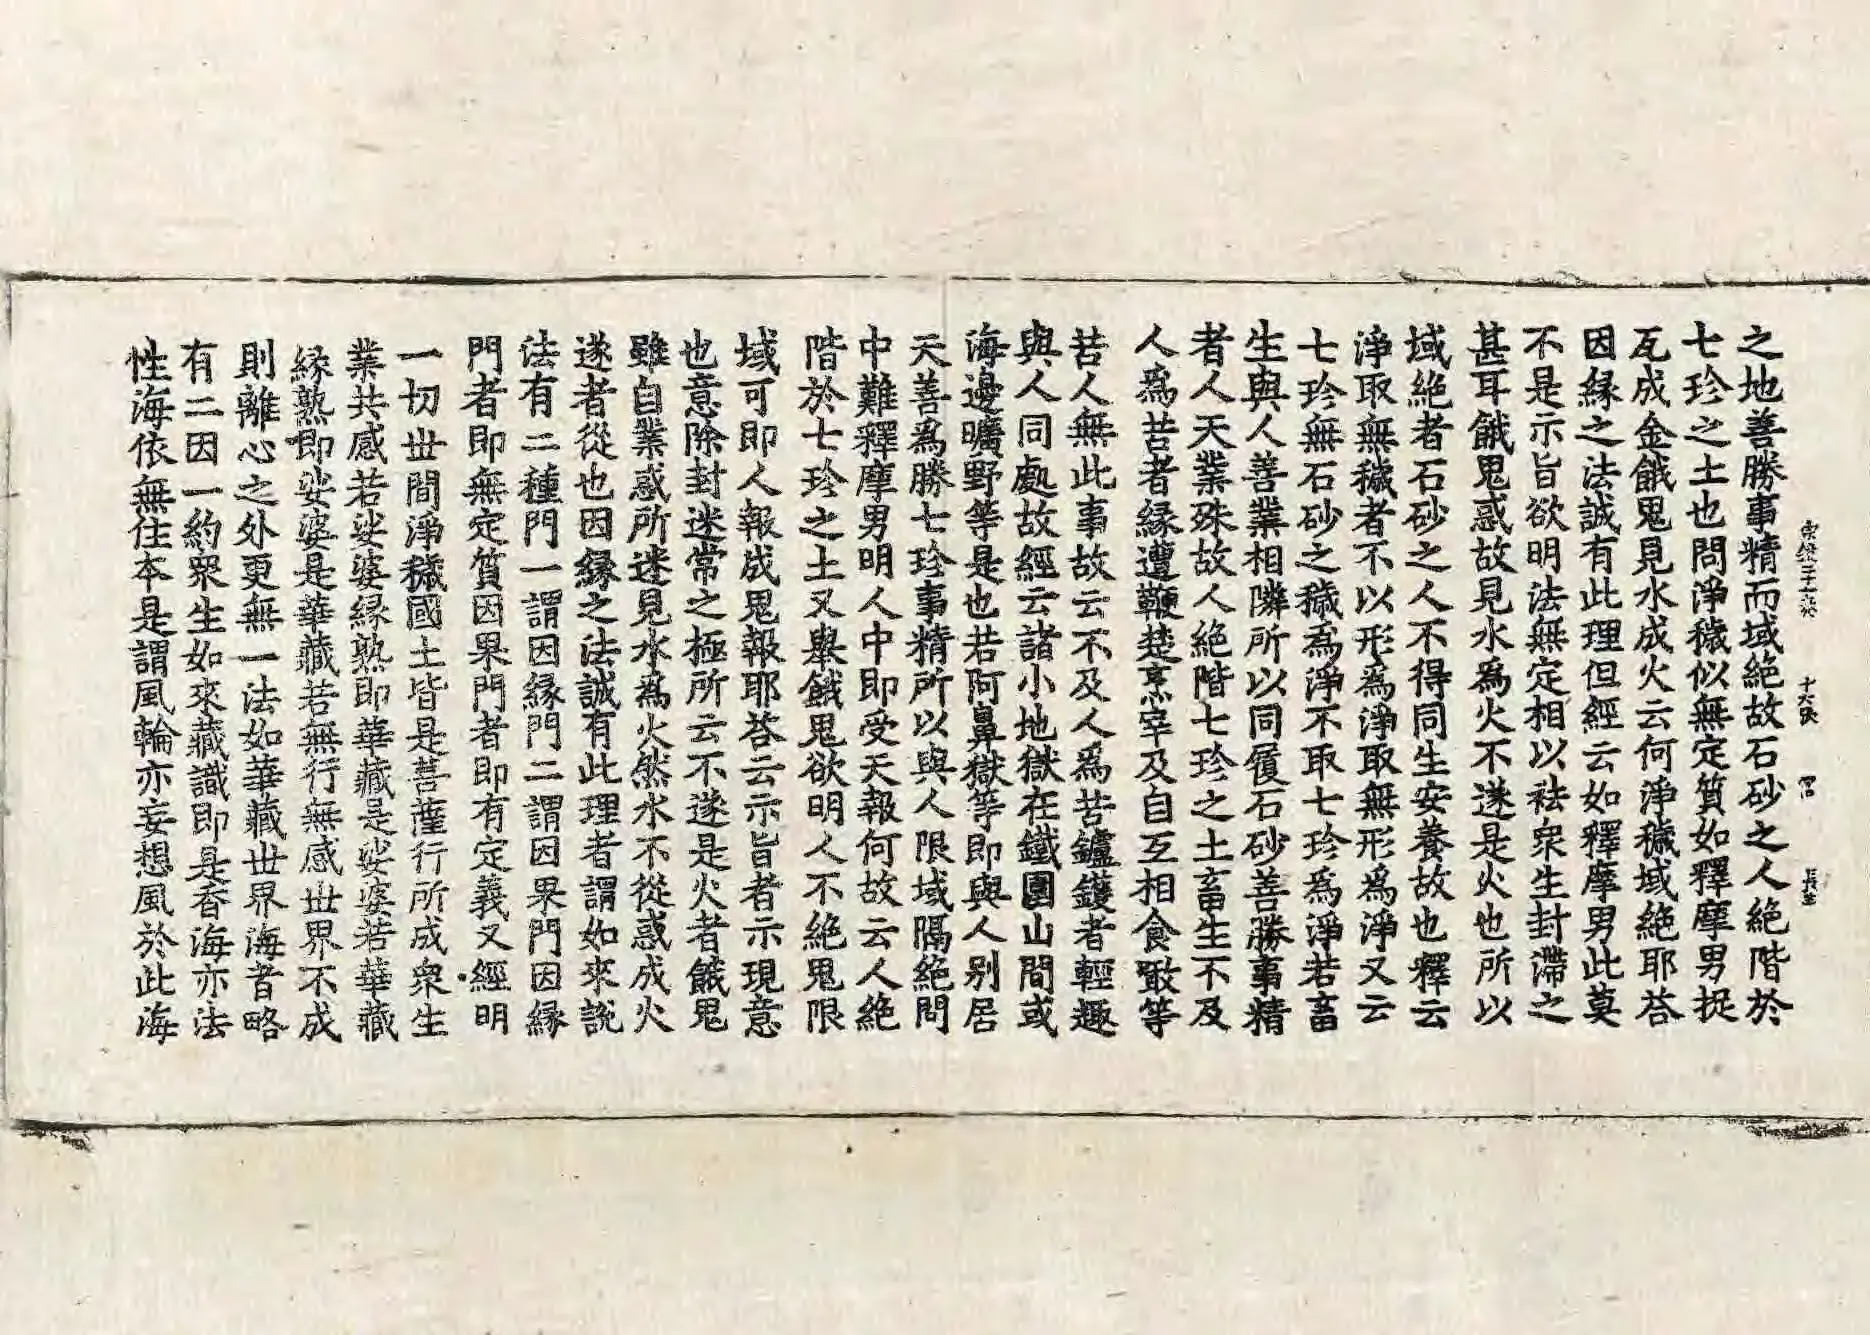 之地善勝事精而域絶故石砂之人絶階於
七珍之土也問淨穢似無定質如釋摩男捉
瓦成金餓鬼見水成火云何淨穢域絶耶荅
因縁之法誠有此理但經云如釋摩男此莫
不是示旨欲明法無定相以袪衆生封滯之
甚耳餓鬼惑故見水為火不遂是火也所以
域絶者石砂之人不得同生安養故也釋云
淨取無穢者不以形為淨取無形為淨又云
七珍無石砂之穢為淨不取七珍為淨若畜
生與人善業相隣所以同履石砂善勝事精
者人天業殊故人絶階七珍之土畜生不及
人為苦者縁遭鞭楚烹宰及自互相食噉等
苦人無此事故云不及人為苦鑪鑊者輕趣
與人同處故經云諸小地獄在鐵圍山間或
海邊曠野等是也若阿鼻獄等即與人別居
天善為勝七珍事精所以與人限域隔絶問
中難釋摩男明人中即受天報何故云人絶
階於七珍之土又舉餓鬼欲明人不絶鬼限
域可即人報成鬼報耶荅云示旨者示現意
也意除封迷常之極所云不遂是火者餓鬼
雖自業惑所迷見水為火然水不從惑成火
遂者從也因縁之法誠有此理者謂如來說
法有二種門一謂因縁門二謂因果門因縁
門者即無定質因果門者即有定義又經明
一切世間淨穢國土皆是菩薩行所成衆生
業共感若娑婆縁熟即華藏是娑婆若華藏
縁熟即娑婆是華藏若無行無感世界不成
則離心之外更無一法如華藏世界海者略
有二因一約衆生如來藏識即是香海亦法
性海依無住本是謂風輪亦妄想風於此海